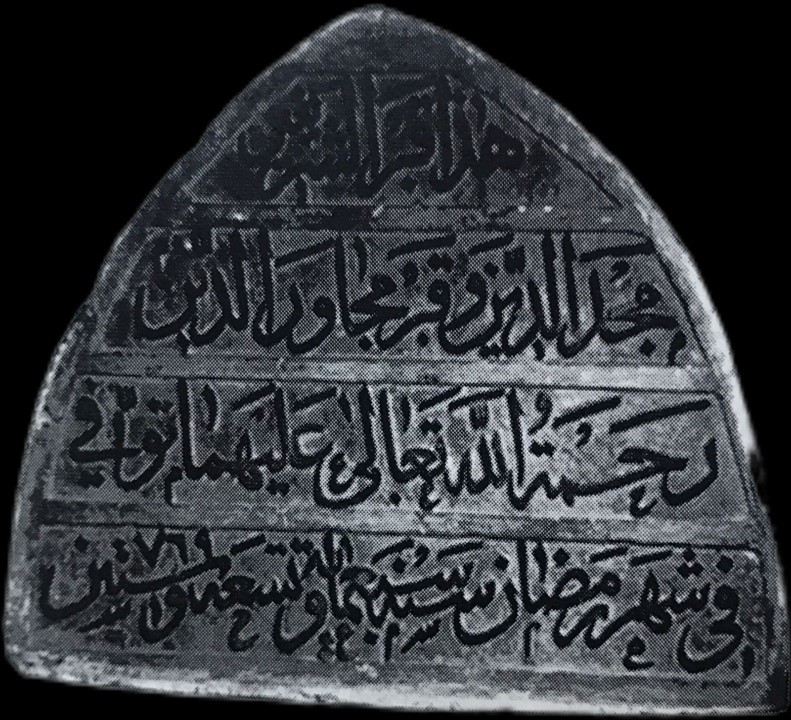 هذا قبر الشريفين
مجد الدين وقبر مجاور الدين
رحمة الله تعالى عليهما توفي
في شهر رمضان سنة سبعمائة وتسعة وستين ٧٦٩